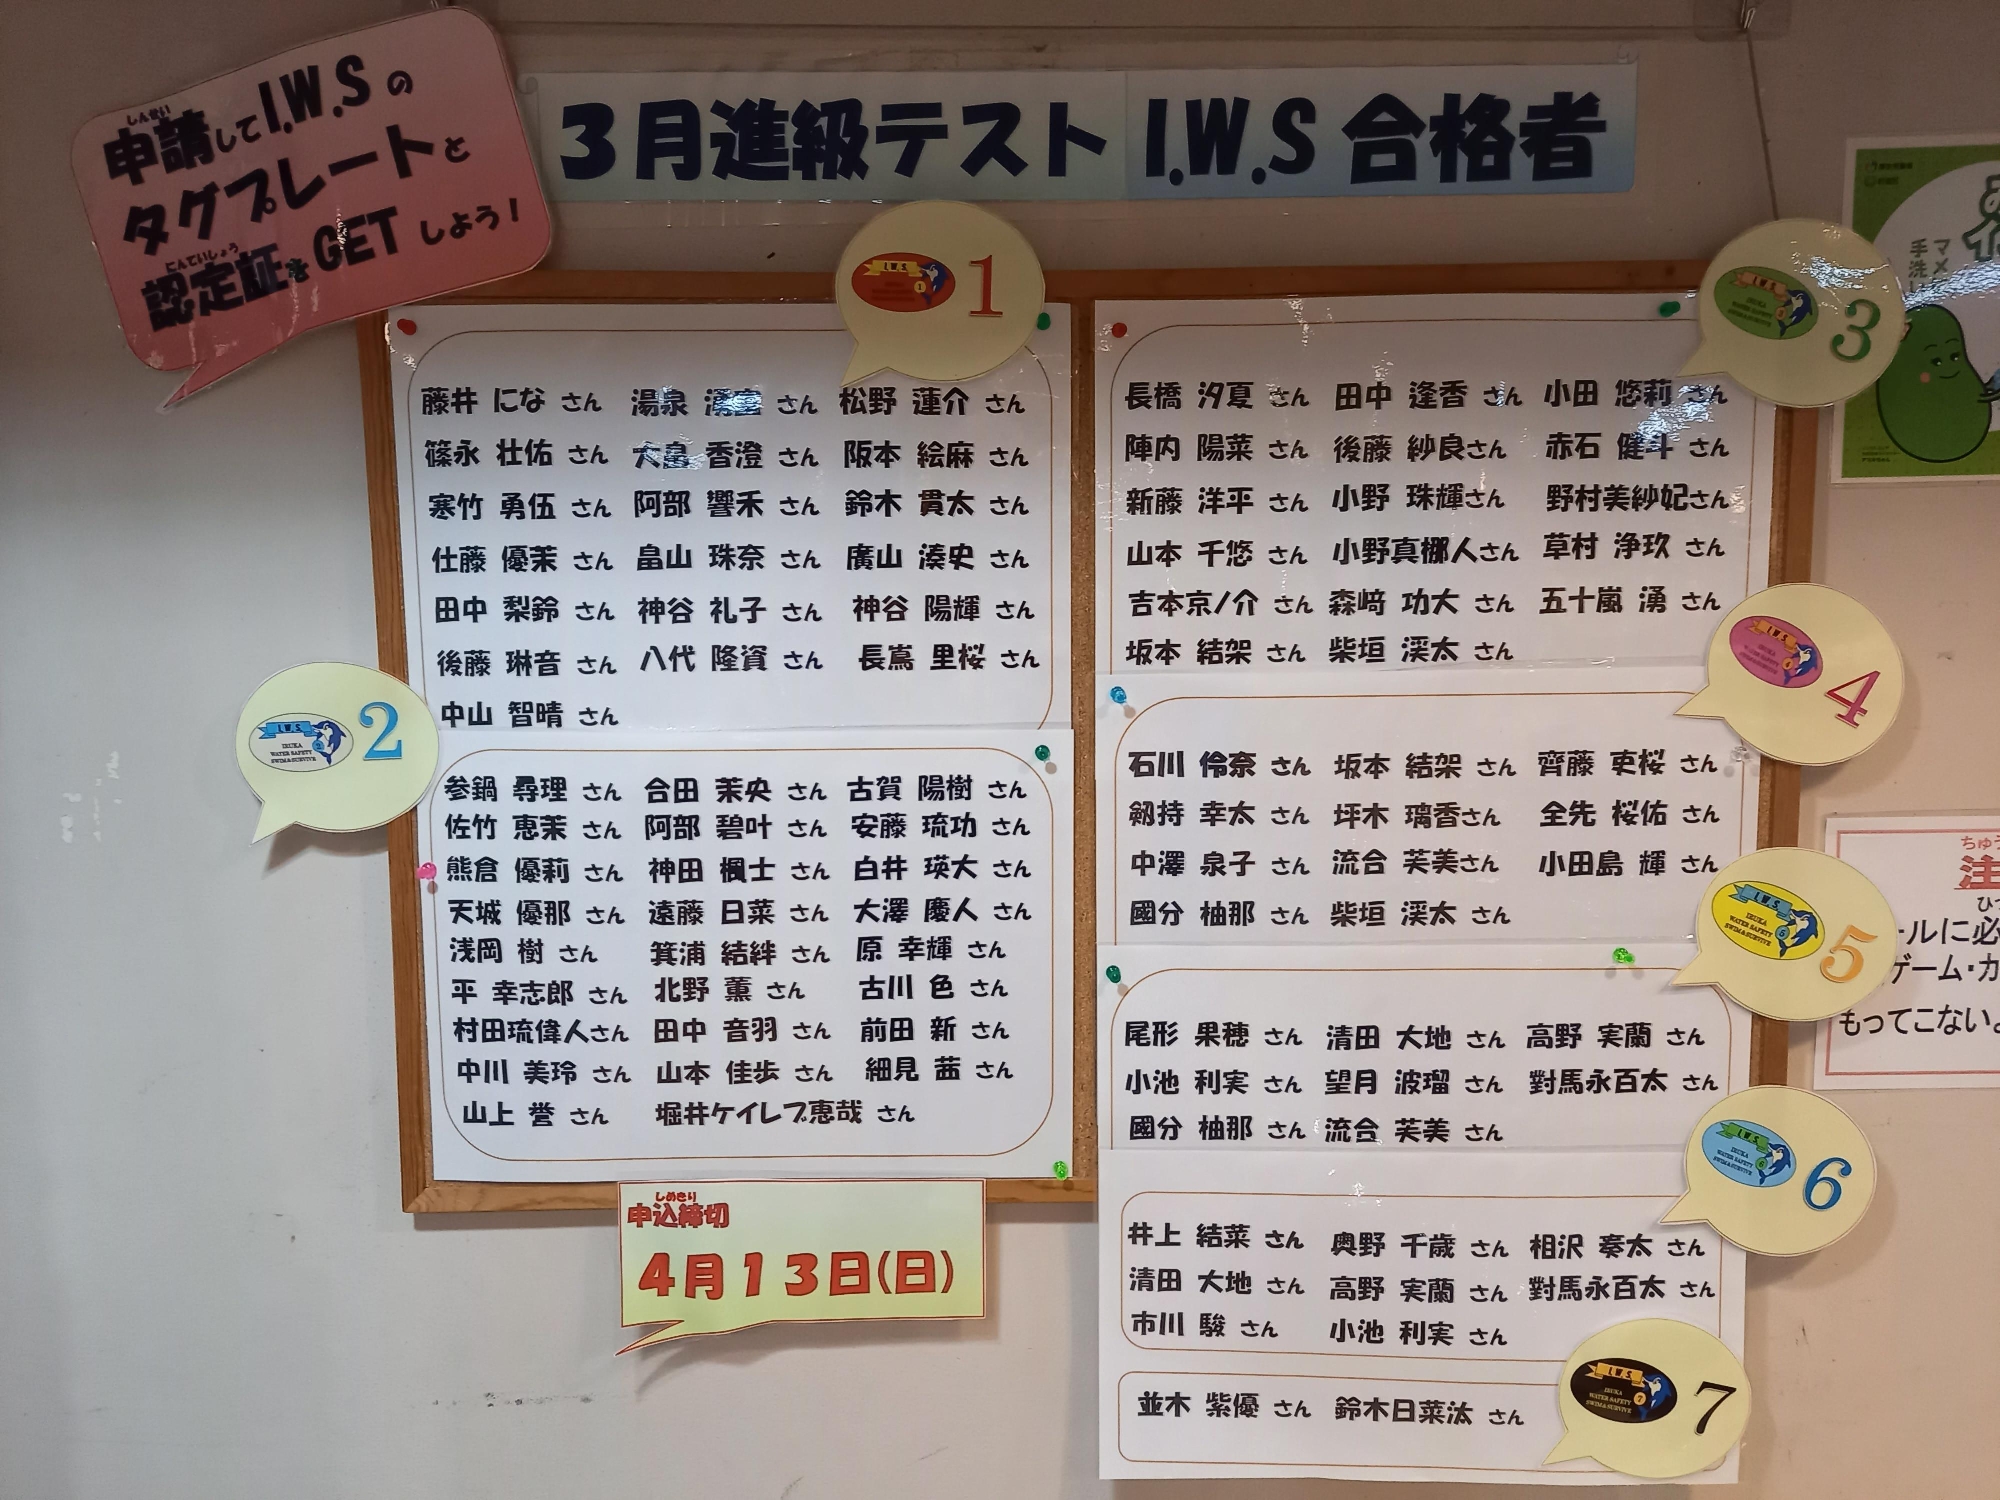 しんせい
申請してI.W.Sの
タグプレートと
にんていしょう
認定証をGETしよう！
3月進級テスト I.W.S 合格者
I.W.S. 1
藤井 にな さん 湯泉 湧 さん 松野 蓮介 さん
篠永 壮佑 さん 大畠 香澄 さん 阪本 絵麻 さん
寒竹 勇伍 さん 阿部 響禾 さん 鈴木 貫太 さん
仕藤 優茉 さん 畠山 珠奈 さん 廣山 湊史 さん
田中 梨鈴 さん 神谷 礼子 さん 神谷 陽輝 さん
後藤 琳音 さん 八代 隆資 さん 長嶌 里桜 さん
中山 智晴 さん
I.W.S. IRUKA WATER SAFETY SWIM&SURVIVE 2
参鍋 尋理 さん 合田 茉央 さん 古賀 陽樹 さん
佐竹 恵茉 さん 阿部 碧叶 さん 安藤 琉功 さん
熊倉 優莉 さん 神田 楓士 さん 白井 瑛大 さん
天城 優那 さん 遠藤 日菜 さん 大澤 慶人 さん
浅岡 樹 さん 箕浦 結絆 さん 原 幸輝 さん
平 幸志郎 さん 北野 薫 さん 古川 色 さん
村田琉偉人さん 田中 音羽 さん 前田 新 さん
中川 美玲 さん 山本 佳歩 さん 細見 茜 さん
山上 誉 さん 堀井ケイレブ恵哉 さん
しめきり
申込締切
4月13日(日)
I.W.S. 3
長橋 汐夏 さん 田中 逢香 さん 小田 悠莉 さん
陣内 陽菜 さん 後藤 紗良さん 赤石 健斗 さん
新藤 洋平 さん 小野 珠輝さん 野村美紗妃さん
山本 千悠 さん 小野真梛人さん 草村 浄玖 さん
吉本京ノ介 さん 森﨑 功大 さん 五十嵐 湧 さん
坂本 結架 さん 柴垣 渓太 さん
I.W.S. 4
石川 伶奈 さん 坂本 結架 さん 齊藤 吏桜 さん
剱持 幸太 さん 坪木 璃香さん 全先 桜佑 さん
中澤 泉子 さん 流合 芙美さん 小田島 輝 さん
國分 柚那 さん 柴垣 渓太 さん
I.W.S. IRUKA WATER SAFETY SWIM&SURVIVE 5
尾形 果穂 さん 清田 大地 さん 高野 実蘭 さん
小池 利実 さん 望月 波瑠 さん 對馬永百太 さん
國分 柚那 さん 流合 芙美 さん
I.W.S. IRUKA WATER SAFETY SWIM&SURVIVE 6
井上 結菜 さん 奥野 千歳 さん 相沢 奏太 さん
清田 大地 さん 高野 実蘭 さん 對馬永百太 さん
市川 駿 さん 小池 利実 さん
I.W.S. IRUKA WATER SAFETY SWIM&SURVIVE 7
並木 紫優 さん 鈴木日菜汰 さん
マメ
手洗い
ちゅう
注
ールに必
ゲーム・カ
もってこないよ